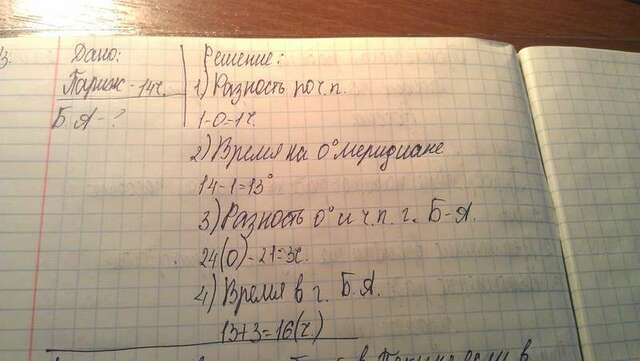 3.
Дано:
Париж - 14ч.
Б.А - ?
Решение:
1) Разность по ч.п.
1-0=1ч.
2) Время на 0° меридиане
14-1=13°
3) Разность 0° и ч.п. г. Б-А.
24(0)-21=3ч.
4) Время в г. Б.А.
13+3=16(ч)